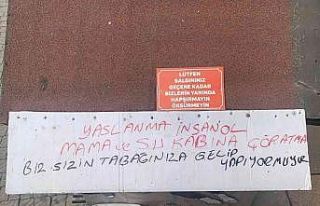 LÜTFEN
SALGINIMIZ
GEÇENE KADAR
BİZLERİN YANINDA
HAPŞIRMAYIN
ÖKSÜRMEYİN
YASLANMA İNSAN OL
MAMA ve SU KABINA
BIZ SIZIN TABAĞINIZA GELIP
YAPIYORMUYUZ